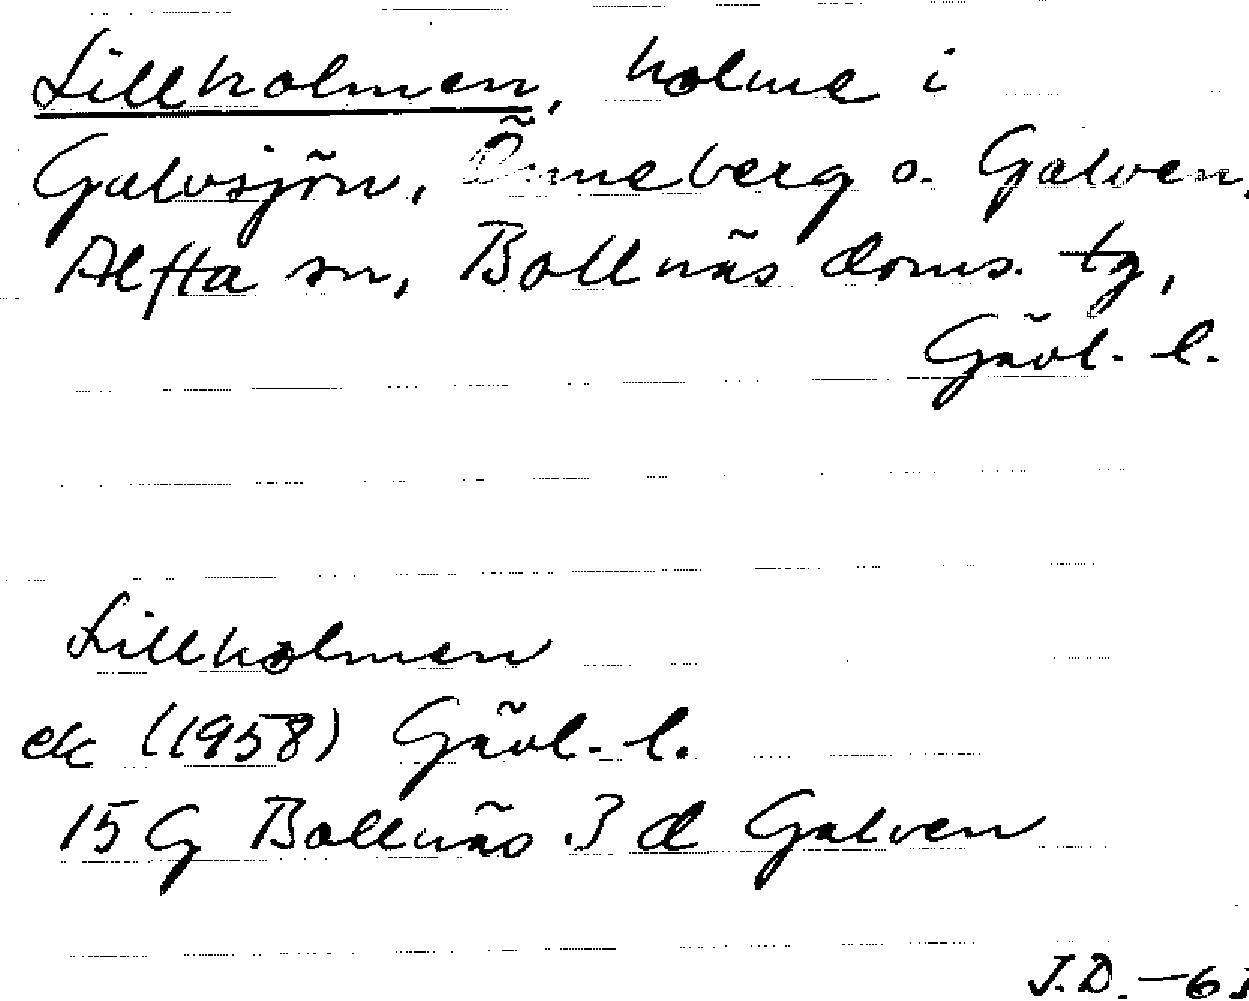 Lillholmen, holme i
Galvsjön, Önneberg o. Galven,
Alfta sn, Bollnäs doms. tg,
Gävl. l.
Lillholmen
ek (1958) Gävl. l.
15 G Bollnäs 3 d Galven
J.D. -63